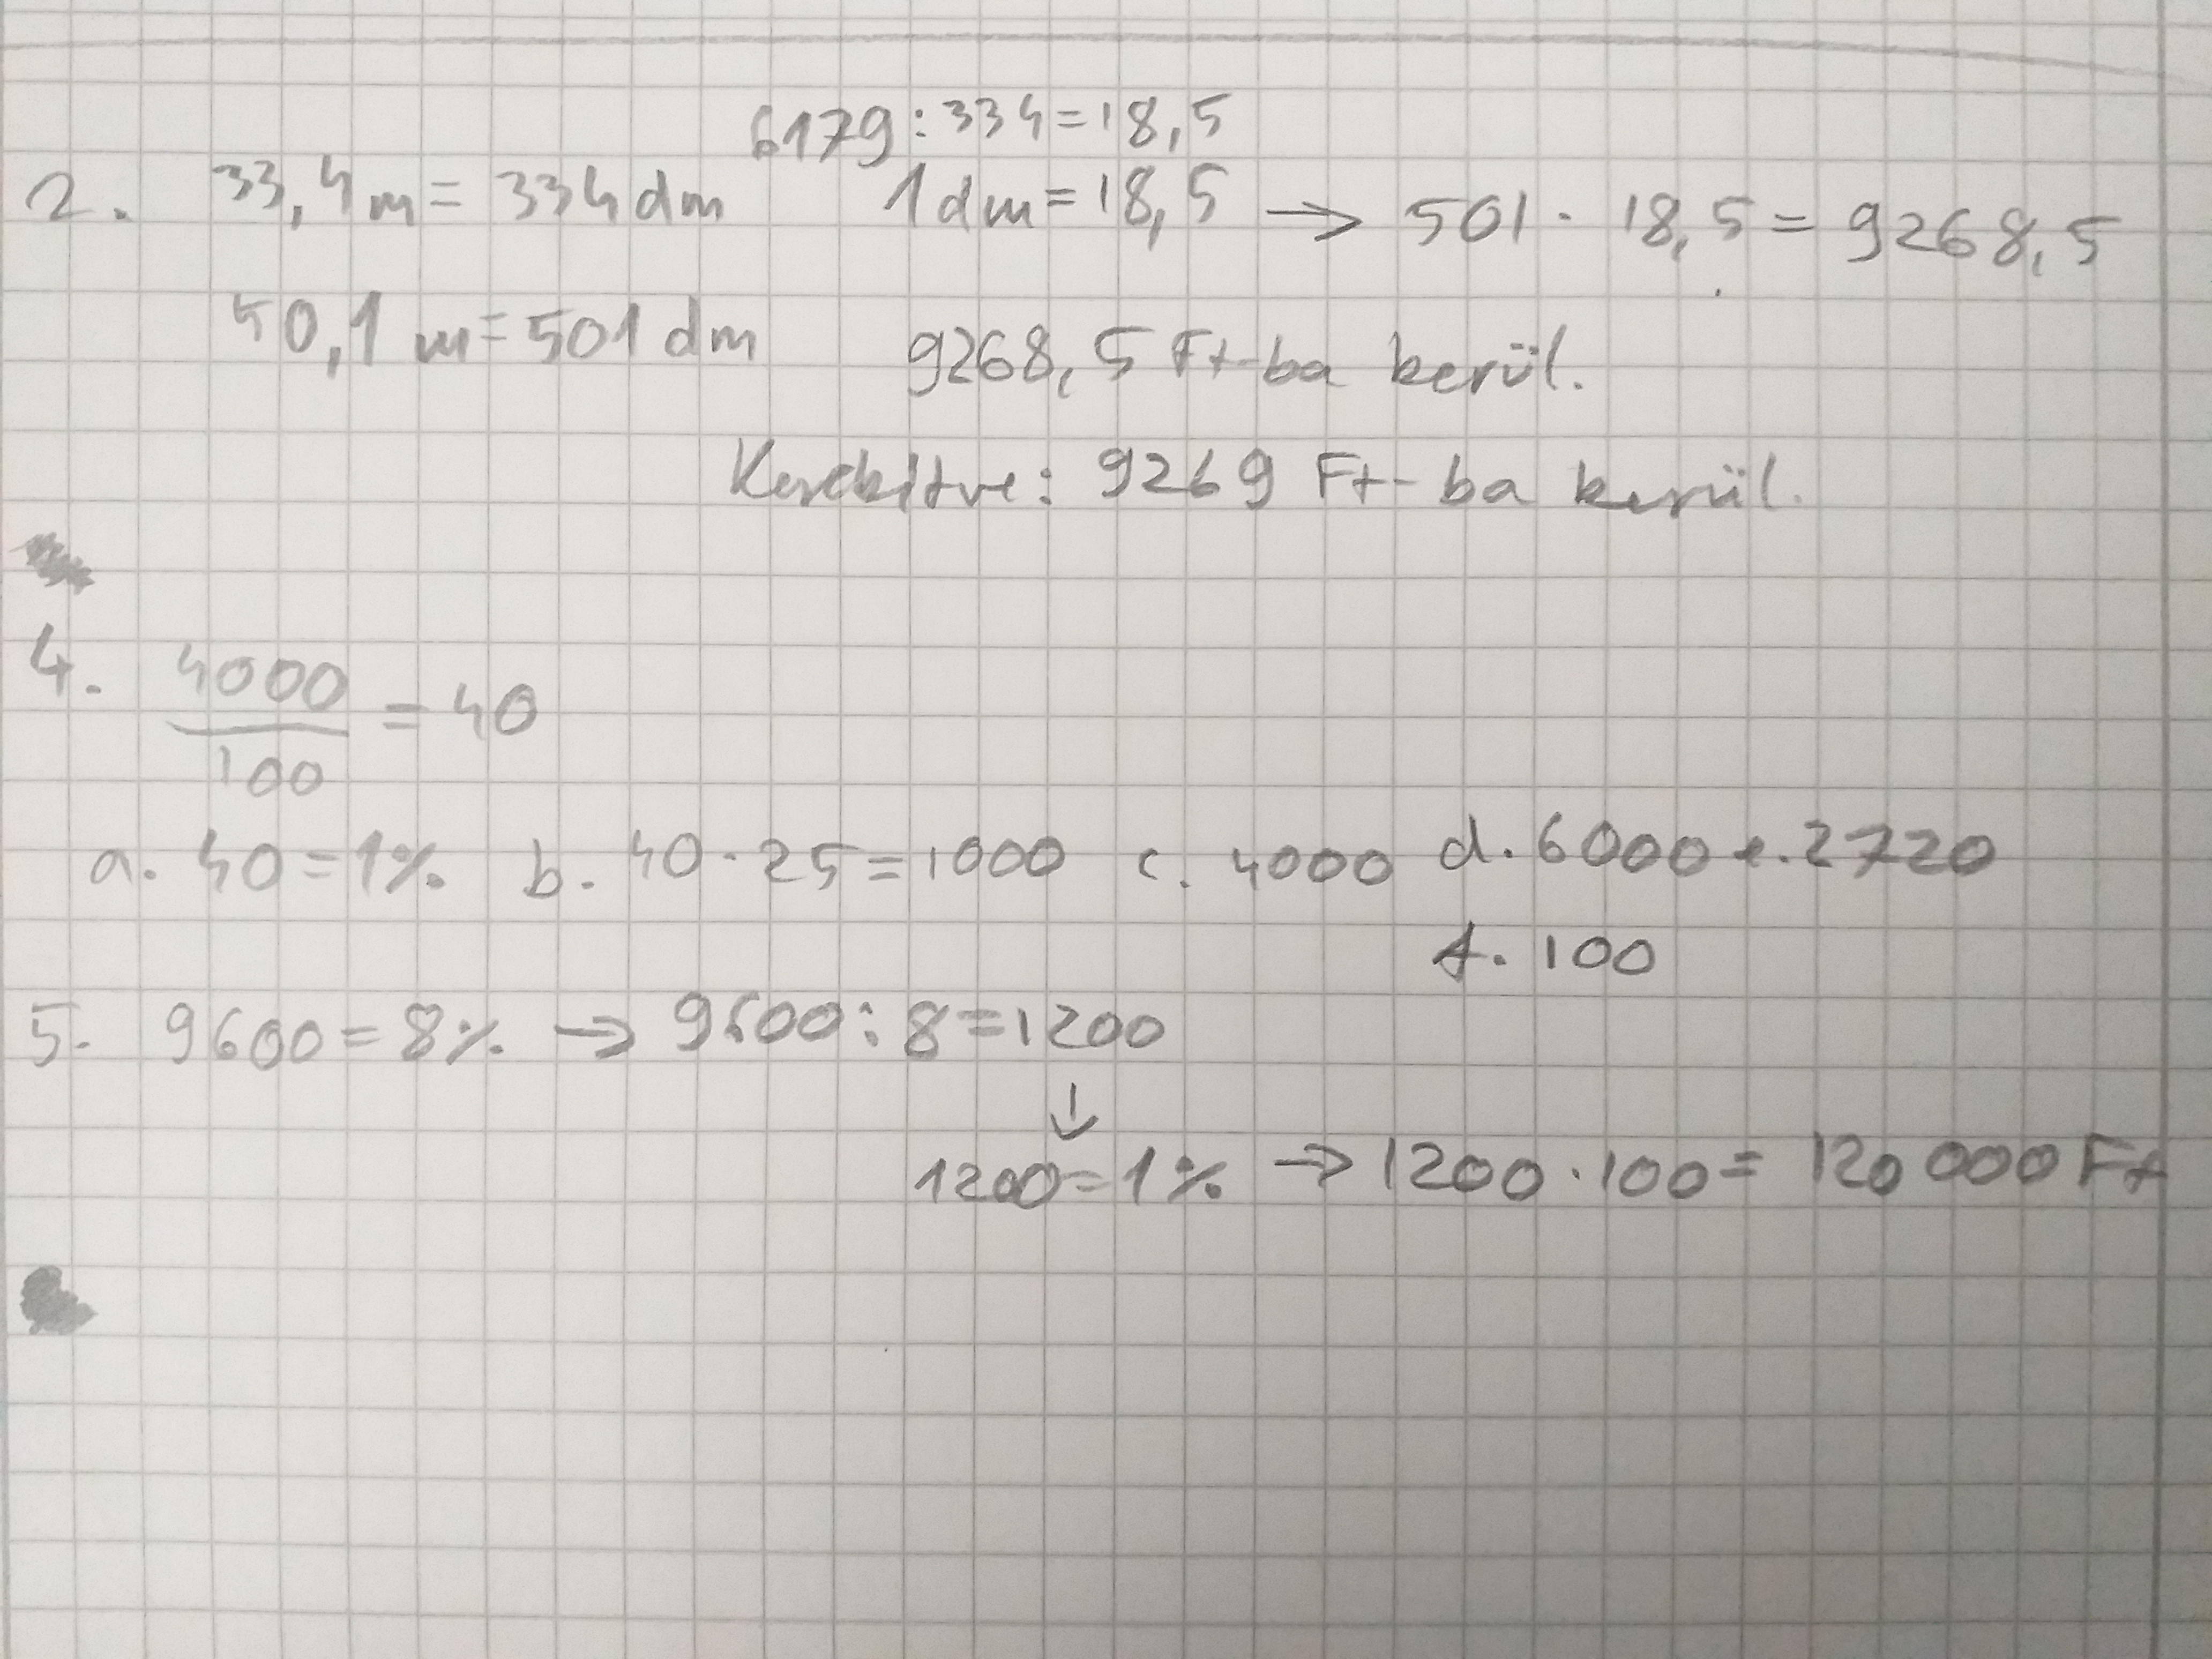 6179:334=18,5
2. 33,4m=334dm 1dm=18,5 → 501·18,5=9268,5
50,1m=501dm 9268,5 Ft-ba kerül.
Kerekítve: 9269 Ft-ba kerül.
4. 4000/100 = 40
a. 40=1% b. 40·25=1000 c. 4000 d. 6000 e. 2720
f. 100
5. 9600=8% → 9600:8=1200
↓
1200=1% → 1200·100=120 000 Ft